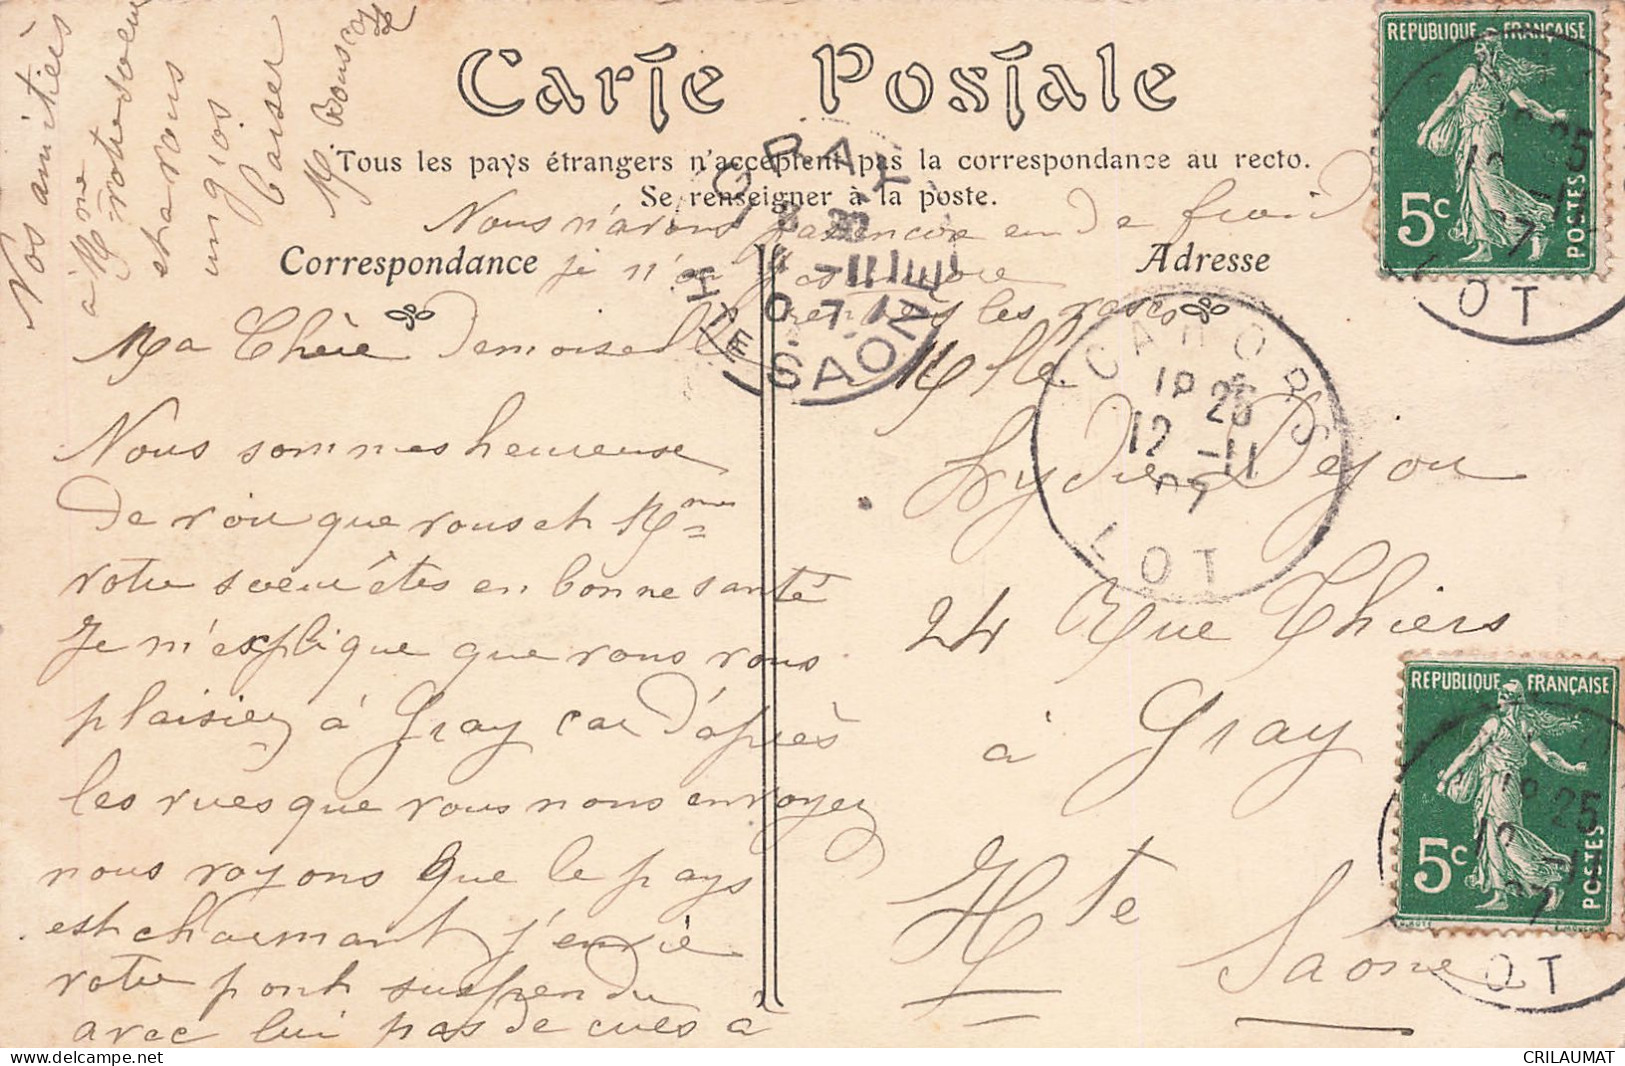 Carte Postale
Tous les pays étrangers n'acceptent pas la correspondance au recto.
Se renseigner à la poste.
Correspondance
Adresse
Ma Chère Demoiselle
Nous sommes heureuse
de voir que vous et Mme
votre soeur êtes en bonne santé
Je m'explique que vous vous
plaisiez à Gray car d'après
les vues que vous nous envoyez
nous voyons que le pays
est charmant j'envie
votre pont suspendu
avec lui pas de crues à
Nous n'avons pas encore eu de froid
je n'ai pas encore
les vases
Nos amitiés
à Mme votre soeur
et à vous
un gros
baiser
M
Mlle
Lydie Dejou
24 Rue Thiers
à Gray
Hte Saône
GRAY
8 30
-11
07
HTE SAONE
CAHORS
18 25
12 -11
07
LOT
REPUBLIQUE FRANÇAISE
5c
POSTES
18 25
12 -11
07
LOT
REPUBLIQUE FRANÇAISE
5c
POSTES
18 25
12 -11
07
OT
delcampe.net
CRILAUMAT